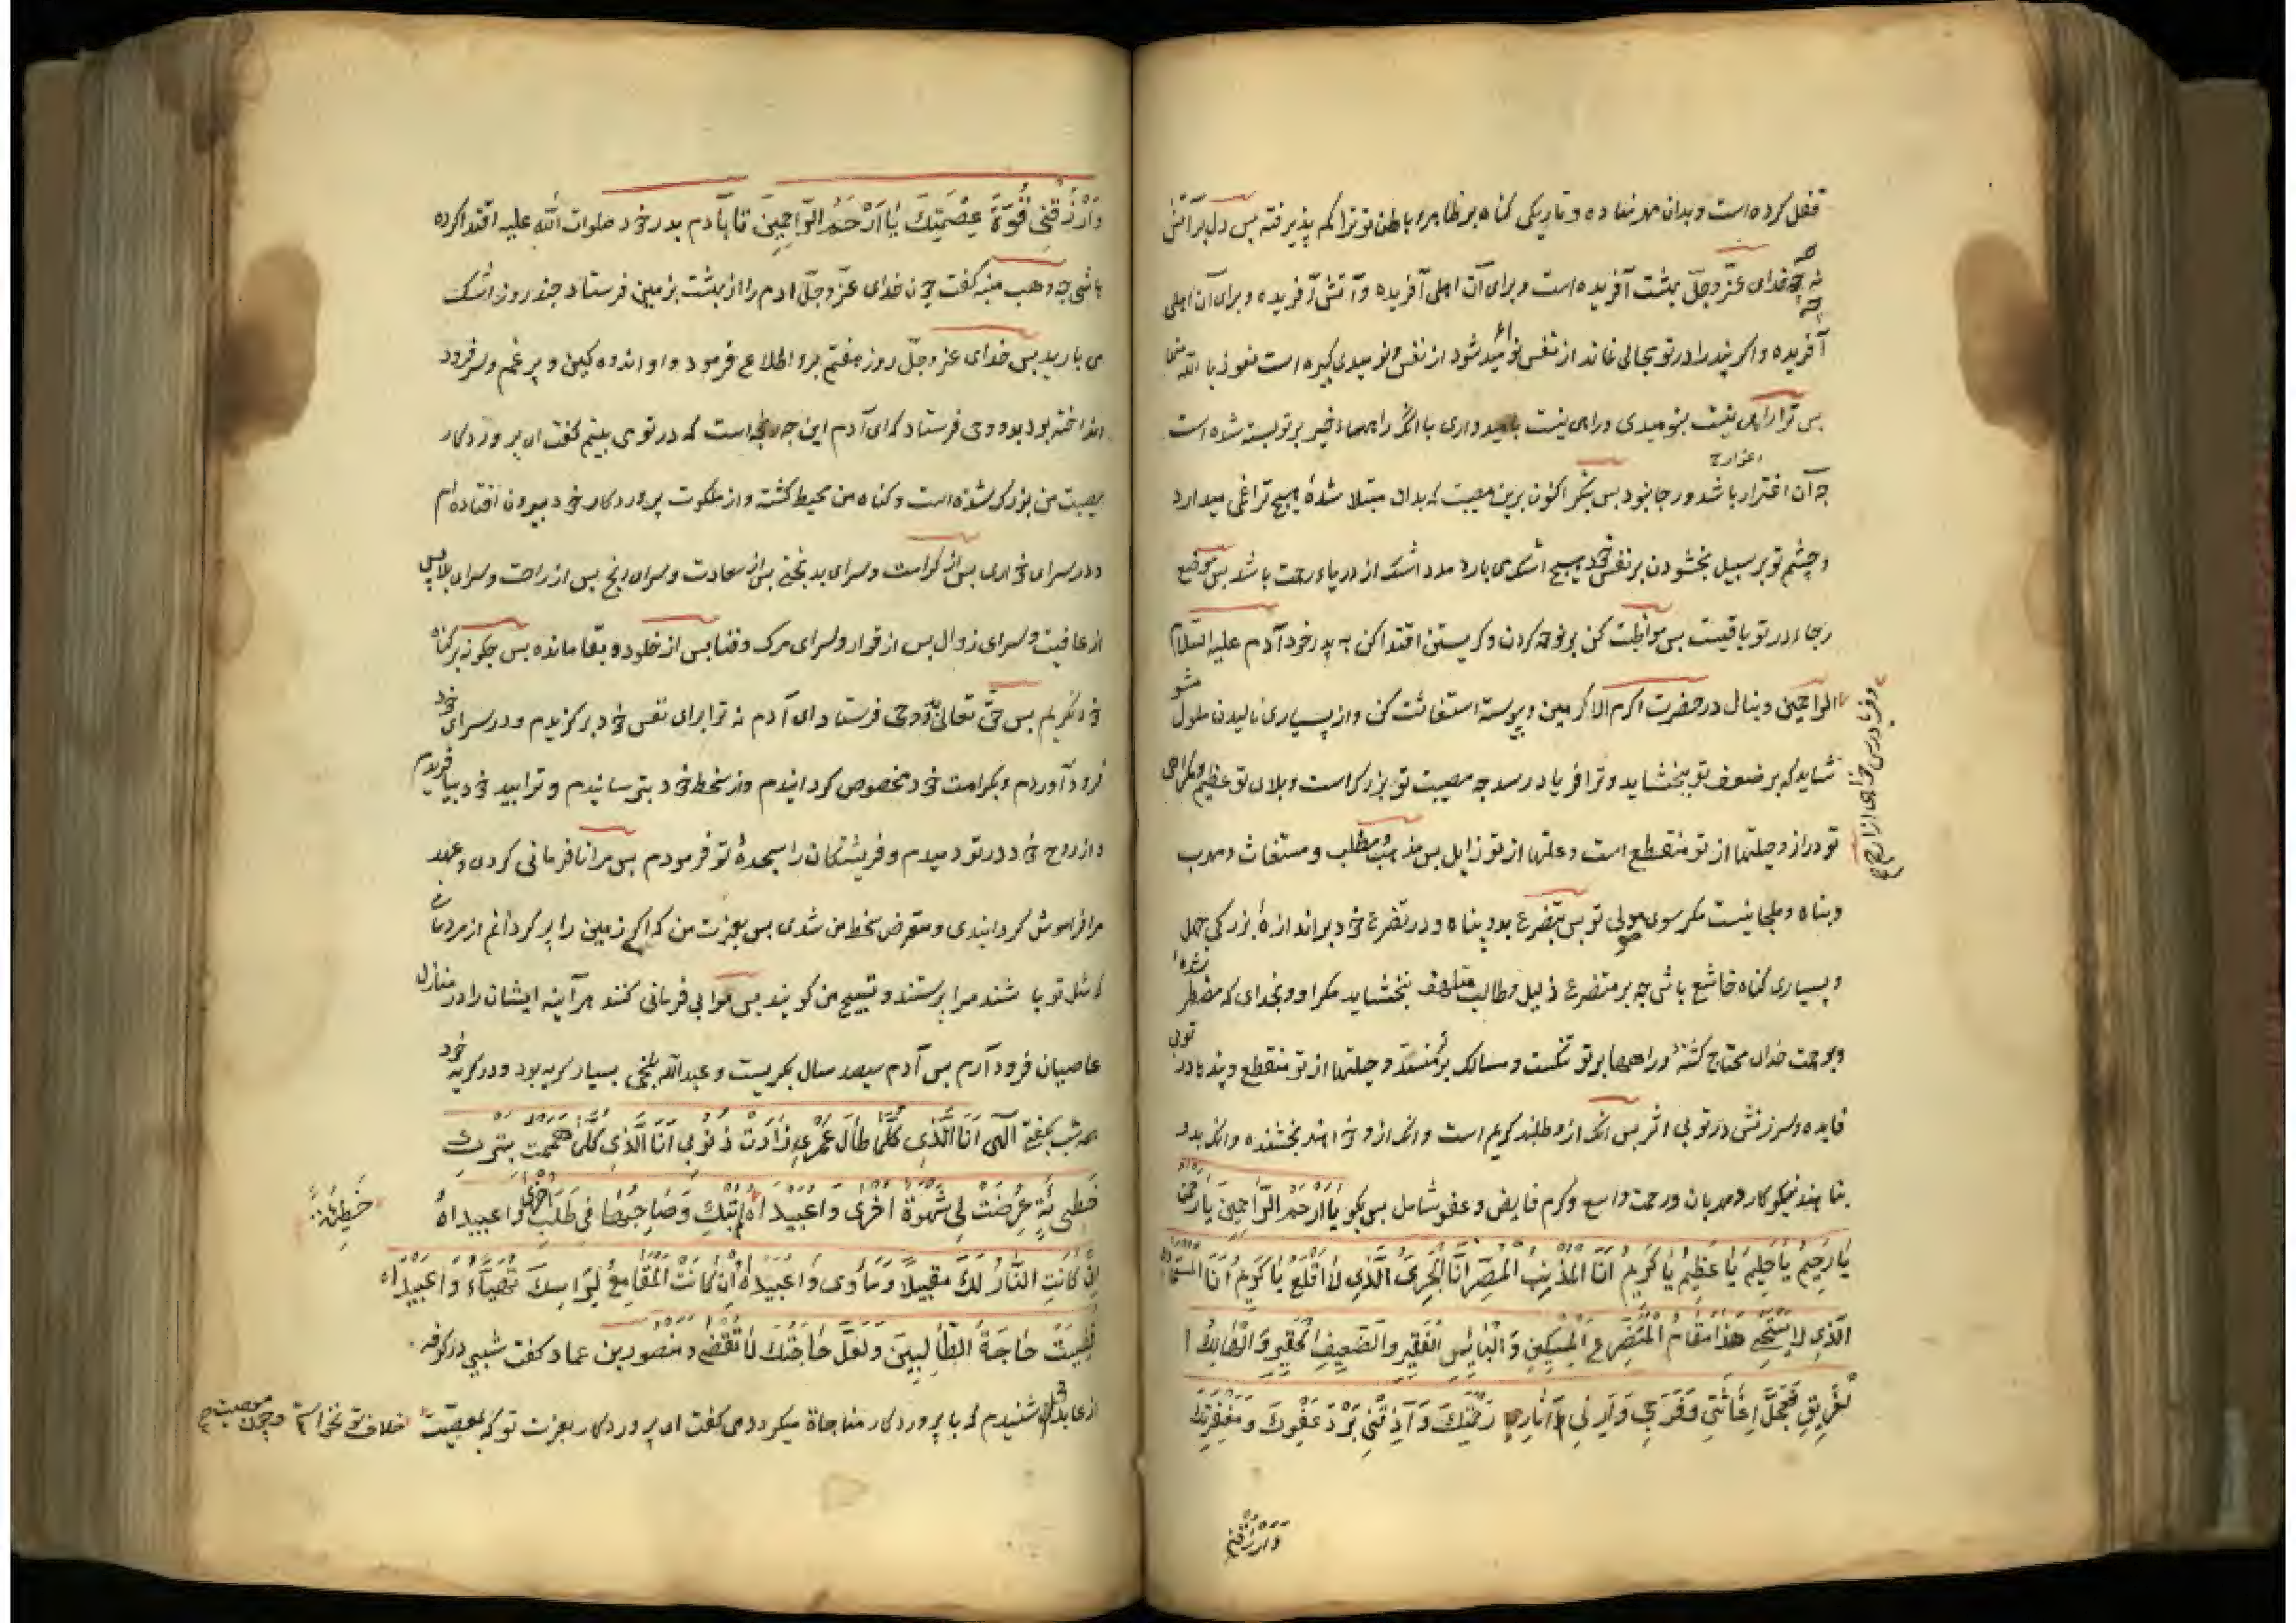 قفل کرده است و بدان مهر نهاده و تاریکی کناه بر ظاهر و باطن تو تراکم پذیرفته بس دل بر آتش
نه چه خدای عزّ وجلّ بهشت آفریده است و برای آن اهلی آفریده و آتش آفریده و برای آن اهلی
آفریده و اکر پند را در تو مجالی نماند از نفس نومید شو و از نفس نومیدی کبیره است نعوذ بالله منها
بس ترا راهی نیست بنومیدی و راهی نیست بامیدواری با آنکه راهها خیر بر تو بسته شده است
چه آن اغترار باشد و رجا نبود بس بنکر اکنون برین مصیبت که بدان مبتلا شدهٔ هیچ ترا غمی میدارد
و چشم تو بر سبیل بخشودن بر نفس خود هیچ اشک می بارد مدد اشک از دریاء رحمت باشد بس موضع
رجاء در تو باقیست بس مواظبت کن بر نوحه کردن و کریستن اقتدا کن به پدر خود آدم علیه السّلام
الراحمین و بنال در حضرت اکرم الاکرمین و پیوسته استغاثت کن و از بسیاری نالیدن ملول مشو
و فریادرس خواهی از ارحم
شاید که بر ضعف تو ببخشاید و ترا فریاد رسد چه مصیبت تو بزرک است و بلای تو عظیم و کمراهی
تو دراز و حیلتها از تو منقطع است و علتها از تو زایل بس مذهب و مطلب و مستغاث و مهرب
و پناه و ملجا نیست مکر سوی مولی تو بس بتضرع بدو پناه و در تضرع خود بر اندازهٔ بزرکی جهل
و بسیاری کناه خاشع باش چه بر متضرع ذلیل و طالب متلهف ببخشاید مکر او و بخدای که مضطر شدهٔ
و برحمت خدای محتاج کشتهٔ و راهها بر تو تنکست و مسالک بر تو منسدّ و حیلتها از تو منقطع و پندها در تو بی
فایده و سرزنش در تو بی اثر بس آنک ازو طلبند کریم است و انک ازو خواهند بخشنده و انک بدو
پناهند نیکوکار و مهربان و رحمت واسع و کرم فایض و عفو شامل بس بکو یَا اَرْحَمَ الرَّاحِمِینَ یَا رَحْمٰنُ
یَا رَحِیمُ یَا حَلِیمُ یَا عَظِیمُ یَا کَرِیمُ اَنَا الْمُذْنِبُ الْمُصِرُّ اَنَا الْجَرِیُّ الَّذِی لَا اُقْلِعُ یَا کَرِیمُ اَنَا
الَّذِی لَا یَسْتَحْیِی هٰذَا مَقَامُ الْمُتَضَرِّعِ الْمِسْکِینِ وَ الْبَائِسِ الْفَقِیرِ وَ الضَّعِیفِ الْحَقِیرِ وَ الْهَالِكِ ا
لْغَرِیقِ فَعَجِّلْ اِغَاثَتِی وَ فَرَجِی وَ اَرِنِی آثَارَ رَحْمَتِكَ وَ اَذِقْنِی بَرْدَ عَفْوِكَ وَ مَغْفِرَتِكَ
وَارْزُقْنِی
وَارْزُقْنِی قُوَّةَ عِصْمَتِكَ یَا اَرْحَمَ الرَّاحِمِینَ تا بآدم پدر خود صلوات اللّه علیه اقتدا کرده
باشی چه وهب منبه کفت چون خدای عزّ وجلّ ادم را از بهشت بزمین فرستاد چند روز اشک
می بارید بس خدای عزّ وجلّ روز هفتم برو اطلاع فرمود و او اندوه کین و پر غم و سر فرود
انداخته بود بدو وحی فرستاد که ای آدم این چه رنجه است که در تو می بینم کفت ای پروردکار
مصیبت من بزرک شده است و کناه من محیط کشته و از ملکوت پروردکار خود بیرون افتاده ام
و در سرای خواری بس از کرامت و سرای بدبختی بس از سعادت و سرای رنج بس از راحت و سرای بلا بس
از عافیت و سرای زوال بس از قرار و سرای مرک و فنا بس از خلود و بقا مانده بس چکونه بر کناه
خود نکریم بس حقّ تعالی وحی فرستاد ای آدم نه ترا برای نفس خود برکزیدم و در سرای خود
فرود آوردم و بکرامت خود مخصوص کردانیدم و از سخط خود بترسانیدم و ترا بید خود بیافریدم
و از روح خود در تو دمیدم و فریشتکان را سجدهٔ تو فرمودم بس مرا نافرمانی کردی و عهد
مرا فراموش کردانیدی و متعرض سخط من شدی بس بعزت من که اکر زمین را پر کردانم از مردمان
که مثل تو باشند مرا پرستند و تسبیح من کویند بس مرا بی فرمانی کنند هر آینه ایشان را در منازل
عاصیان فرود آرم بس آدم سیصد سال بکریست و عبدالله بلخی بسیار کریه بود و در کریه خود
همه شب بکفتی الٰهی اَنَا الَّذِی کُلَّمَا طَالَ عُمْرِی زَادَتْ ذُنُوبِی اَنَا الَّذِی کُلَّمَا هَمَمْتُ بِتَرْكِ
خَطِیئَةٍ عَرَضَتْ لِی شَهْوَةٌ اُخْرٰی وَاعَبِیدَاهْ وَ صَاحِبُهَا فِی طَلَبِ اُخْرٰی وَاعَبِیدَاهُ
خَطِیئَةٌ
اِنْ کَانَتِ النَّارُ لَكَ مَقِیلًا وَ مَأْوًی وَاعَبِیدَاهُ اِنْ کَانَتِ الْمَقَامِعُ لِرَأْسِكَ تُهَیَّاُ وَاعَبِیدَاهُ
قُضِیَتْ حَاجَةُ الطَّالِبِینَ وَ لَعَلَّ حَاجَتَكَ لَا تُقْضٰی و منصور بن عمار کفت شبی در کوفه
از عابدی شنیدم که با پروردکار مناجاة میکرد و می کفت ای پروردکار بعزت تو که بمعصیت خلاف تو نخواستم